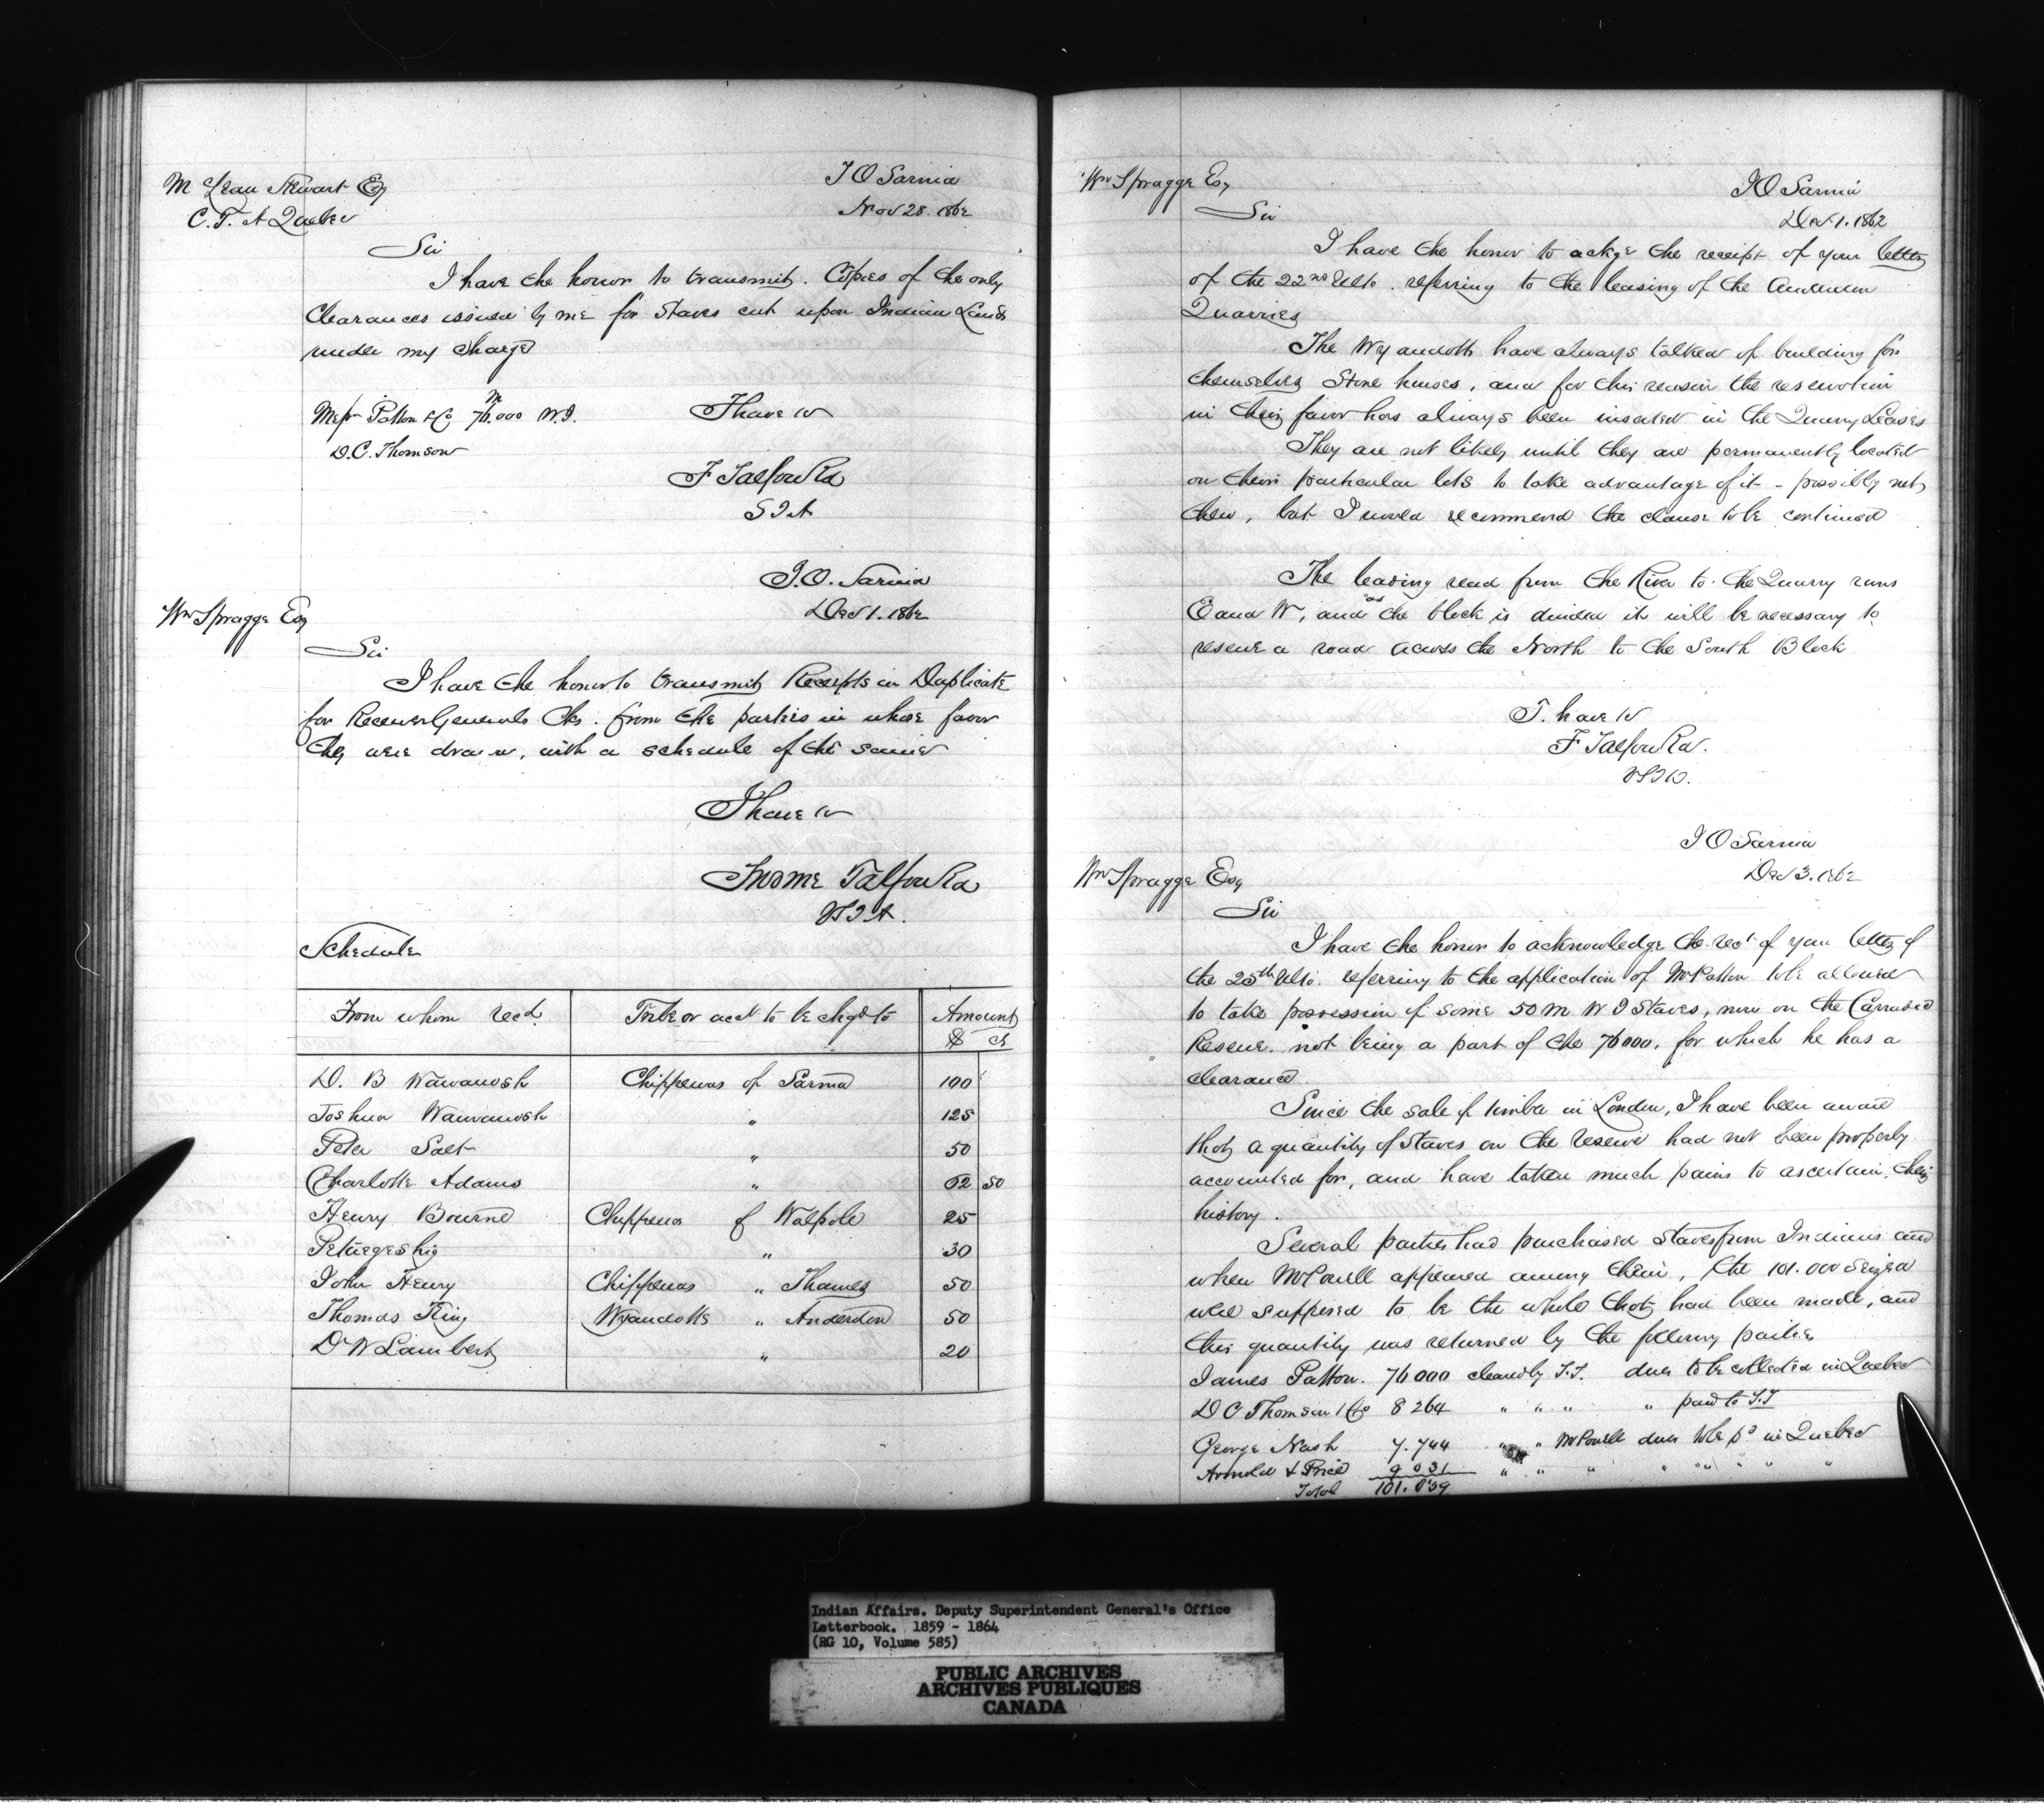 McLean Stewart Esq
C. T. A Quebec
I O Sarnia
Nov 28. 1862
Sir
I have the honor to transmit. Copies of the only
Clearances issued by me for Staves cut upon Indian Lands
under my charge
Messrs Patton & Co 76.000 W.I.
M
I have &c
D. C. Thomson
F Talfourd
S I A
I. O. Sarnia
Dec 1. 1862
Wm Spragge Esq
Sir
I have the honor to transmit Receipts in Duplicate
for Receiver Generals Cks. from the parties in whose favor
they were drawn, with a schedule of the same
I have &c
Froome Talfourd
VSIA.
Schedule
From whom recd. Tribe or acct to be chgd to Amount
$ cts
D. B Wawanosh Chippewas of Sarnia 100
Joshua Wawanosh " 125
Peter Salt " 50
Charlotte Adams " 62 50
Henry Bourne Chippewas of Walpole 25
Petwegeshig " 30
John Henry Chippewas " Thames 50
Thomas King Wyandotts " Anderdon 50
Dr W Lambert " 20
Wm Spragge Esq
I O Sarnia
Dec 1. 1862
Sir
I have the honor to ackge the receipt of your letter
of the 22nd Ulto. referring to the leasing of the Anderdon
Quarries
The Wyandotts have always talked of building for
themselves Stone houses, and for this reason the reservation
in their favor has always been inserted in the Quarry Leases
They are not likely until they are permanently located
on their particular lots to take advantage of it - possibly not
then, but I would recommend the clause to be continued
The leading road from the River to the Quarry runs
E and W, and as the block is divided it will be necessary to
reserve a road across the North to the South Block
I. have &c
F Talfourd.
VSIA.
I O Sarnia
Dec 3. 1862
Wm Spragge Esq
Sir
I have the honor to acknowledge the rect of your letter of
the 25th Ulto. referring to the application of Mr Patton to be allowed
to take possession of some 50 M W I Staves, now on the
Reserve. not being a part of the 76000. for which he has a
clearance.
Since the sale of timber in London, I have been aware
that a quantity of Staves on the reserve had not been properly
accounted for, and have taken much pains to ascertain their
history.
Several parties had purchased staves from Indians and
when McPowell appeared among them, the 101.000 seized
were supposed to be the whole that had been made, and
this quantity was returned by the following parties
James Patton. 76000 cleared by F.T. dues to be collected in Quebec
D C Thomson & Co 8 264 " " " " paid to F.T
George Nash 7.744 " " McPowell dues to be pd in Quebec
Arnold & Price 9 031 " " " " " " " "
Total 101.039
Indian Affairs. Deputy Superintendent General's Office
Letterbook. 1859 - 1864
(RG 10, Volume 585)
PUBLIC ARCHIVES
ARCHIVES PUBLIQUES
CANADA